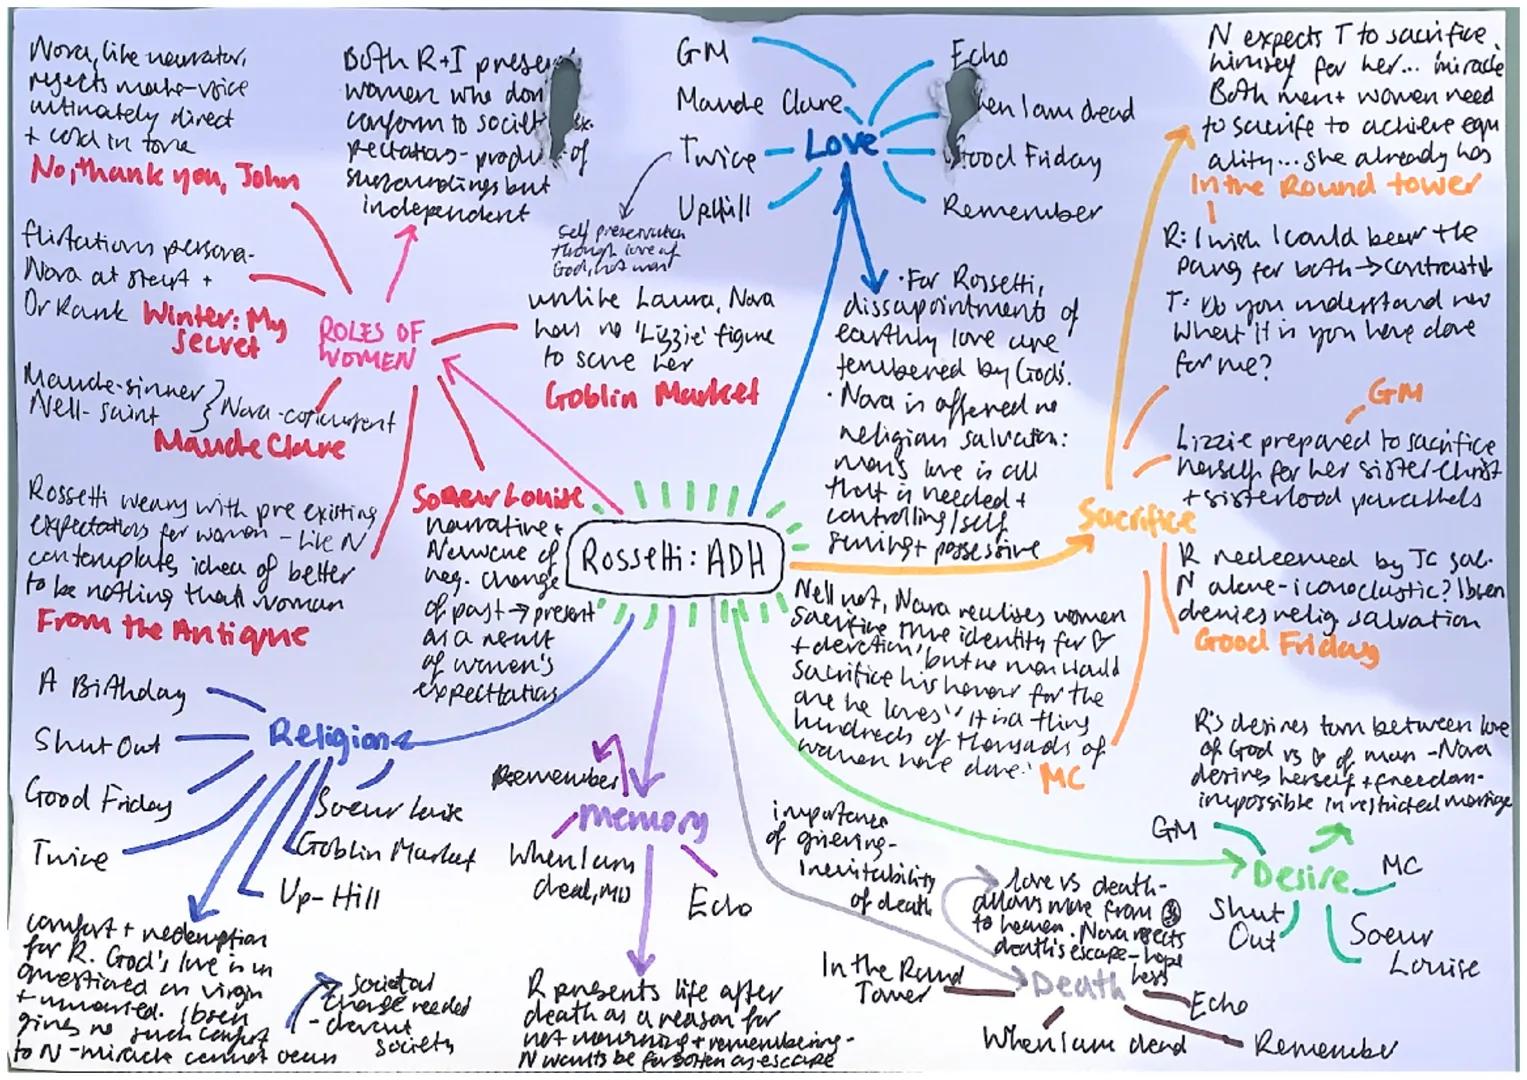 Nora, like narrator,
rejects male-voice
ultimately direct
+ cold in tone
No, thank you, John
Both R+I presen
women who don
conform to societ ex-
pectations- produ of
surroundings but
independent
GM
Maude Clare
Twice
UpHill
Love
Echo
hen I am dead
Good Friday
Remember
Self preservation
though love of
God, not man
N expects T to sacrifice
himself for her... miracle
Both men + women need
to sacrife to achieve equ
ality... she already has
In the Round tower
R: I wish I could bear the
pang for both → contrast
T: Do you understand now
what it is you have done
for me?
flirtatious persona-
Nora at start +
Dr Rank Winter: My
Secret
ROLES OF
WOMEN
unlike Laura, Nora
has no 'Lizzie' figure
to save her
Goblin Market
Maude-sinner
Nell- saint } Nora -
Maude Clare
· For Rossetti,
dissapointments of
earthly love are
by God's.
· Nora is offered no
religious salvation:
man's love is all
that is needed +
controlling/self
serving + possessive
GM
Lizzie prepared to sacrifice
herself for her sister-Christ
+ sisterhood parallels
Sacrifice
R redeemed by JC sac.
N alone-iconoclastic? Ibsen
denies relig salvation
Good Friday
Rossetti weary with pre existing
expectations for women - like N
contemplates idea of better
to be nothing than woman
From the Antique
Soeur Louise
narrative +
N aware of
neg. change
of past → present
as a result
of women's
expectations
Rossetti: ADH
Nell not, Nora realises women
sacrifice true identity for ♡
+ devotion, 'but no man would
sacrifice his honour for the
one he loves' 'it is a thing
hundreds of thousands of
women have done.' MC
A Birthday
Shut Out
Good Friday
Twice
Religion
Soeur Louise
Goblin Market
Up-Hill
comfort + redemption
for R. God's love is un
questioned on virgin
+ unmarried. Ibsen
gives no such comfort
to N -miracle cannot occur
societal
change needed
society
Remember
Memory
When I am
dead, MD
Echo
R presents life after
death as a reason for
not mourning + remembering-
N wants be forgotten as escape
importance
of grieving-
inevitability
of death
love vs death-
allows move from
to heaven. Nora rejects
death's escape- hope
less
In the Round
Tower
Death
Echo
When I am dead
Remember
R's desires torn between love
of God vs ♡ of man -Nora
desires herself + freedom-
impossible in restricted marriage
GM
Desire
MC
Shut
Out
Soeur
Louise